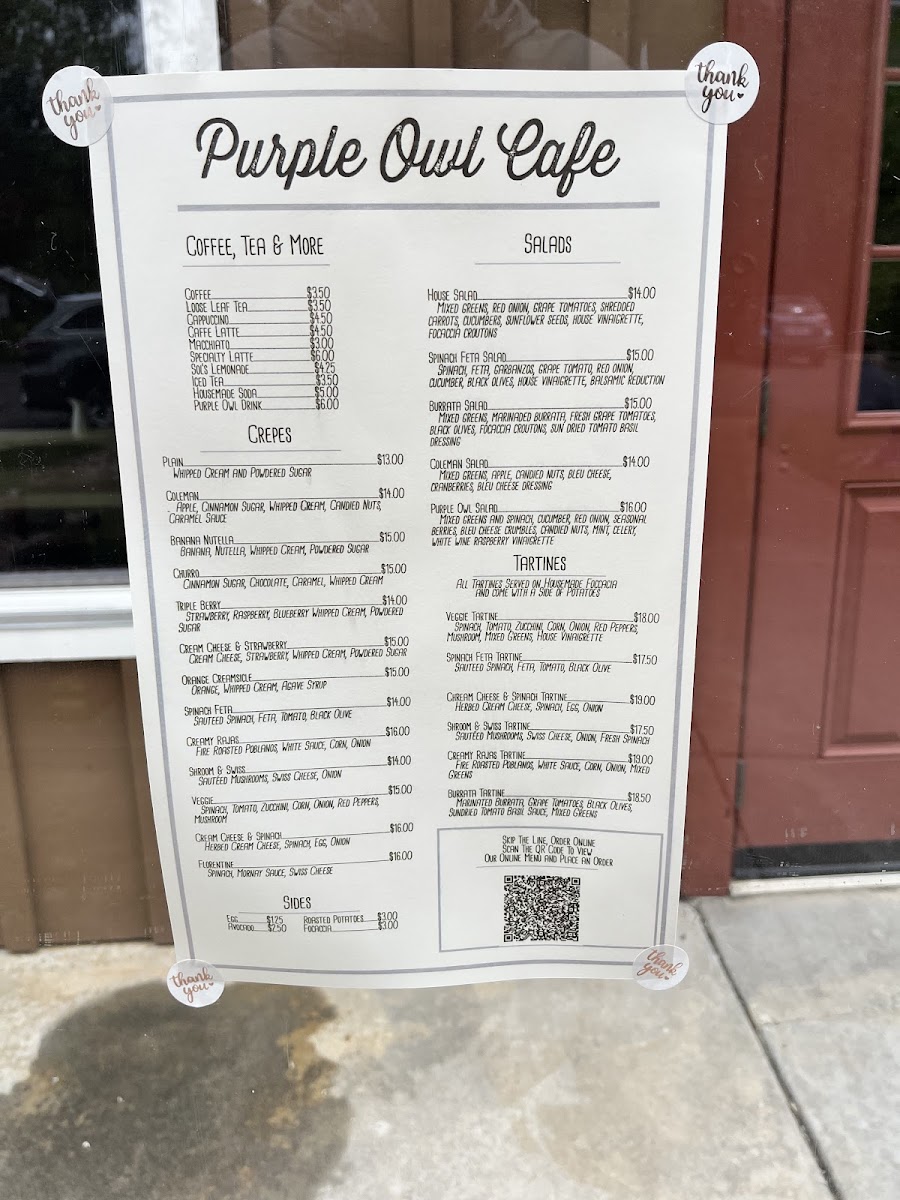 thank you
thank you
Purple Owl Cafe
Coffee, Tea & More
Coffee $3.50
Loose Leaf Tea $3.50
Cappuccino $4.50
Caffe Latte $4.50
Macchiato $3.00
Specialty Latte $6.00
Sol's Lemonade $4.25
Iced Tea $3.50
Housemade Soda $5.00
Purple Owl Drink $6.00
Crepes
Plain $13.00
Whipped Cream and Powdered Sugar
Coleman $14.00
Apple, Cinnamon Sugar, Whipped Cream, Candied Nuts,
Caramel Sauce
Banana Nutella $15.00
Banana, Nutella, Whipped Cream, Powdered Sugar
Churro $15.00
Cinnamon Sugar, Chocolate, Caramel, Whipped Cream
Triple Berry $14.00
Strawberry, Raspberry, Blueberry Whipped Cream, Powdered
Sugar
Cream Cheese & Strawberry $15.00
Cream Cheese, Strawberry, Whipped Cream, Powdered Sugar
Orange Creamsicle $15.00
Orange, Whipped Cream, Agave Syrup
Spinach Feta $14.00
Sauteed Spinach, Feta, Tomato, Black Olive
Creamy Rajas $16.00
Fire Roasted Poblanos, White Sauce, Corn, Onion
Shroom & Swiss $14.00
Sauteed Mushrooms, Swiss Cheese, Onion
Veggie $15.00
Spinach, Tomato, Zucchini, Corn, Onion, Red Peppers,
Mushroom
Cream Cheese & Spinach $16.00
Herbed Cream Cheese, Spinach, Egg, Onion
Florentine $16.00
Spinach, Mornay Sauce, Swiss Cheese
Sides
Egg $1.25 Roasted Potatoes $3.00
Avocado $2.50 Focaccia $3.00
Salads
House Salad $14.00
Mixed greens, red onion, grape tomatoes, shredded
carrots, cucumbers, sunflower seeds, house vinaigrette,
focaccia croutons
Spinach Feta Salad $15.00
Spinach, feta, garbanzos, grape tomato, red onion,
cucumber, black olives, house vinaigrette, balsamic reduction
Burrata Salad $15.00
Mixed greens, marinaded burrata, fresh grape tomatoes,
black olives, focaccia croutons, sun dried tomato basil
dressing
Coleman Salad $14.00
Mixed greens, apple, candied nuts, bleu cheese,
cranberries, bleu cheese dressing
Purple Owl Salad $16.00
Mixed greens and spinach, cucumber, red onion, seasonal
berries, bleu cheese crumbles, candied nuts, mint, celery,
white wine raspberry vinaigrette
Tartines
All Tartines Served on Housemade Foccacia
and come with a side of Potatoes
Veggie Tartine $18.00
Spinach, Tomato, Zucchini, Corn, Onion, Red Peppers,
Mushroom, Mixed Greens, House Vinaigrette
Spinach Feta Tartine $17.50
Sauteed Spinach, Feta, Tomato, Black Olive
Chream Cheese & Spinach Tartine $19.00
Herbed Cream Cheese, Spinach, Egg, Onion
Shroom & Swiss Tartine $17.50
Sautéed Mushrooms, Swiss Cheese, Onion, Fresh Spinach
Creamy Rajas Tartine $19.00
Fire Roasted Poblanos, White Sauce, Corn, Onion, Mixed
Greens
Burrata Tartine $18.50
Marinated Burrata, Grape Tomatoes, Black Olives,
Sundried Tomato Basil Sauce, Mixed Greens
Skip The Line, Order Online
Scan The QR Code To View
Our Online Menu and Place an Order
thank you
thank you